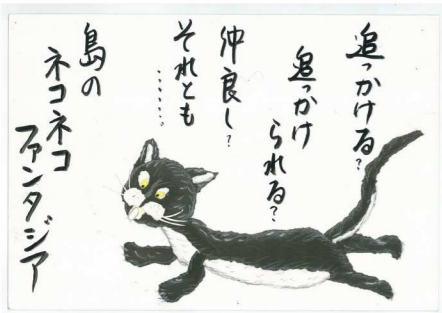 追っかける?
追っかけ
られる?
仲良し?
それとも
……。
島の
ネコネコ
ファンタジア